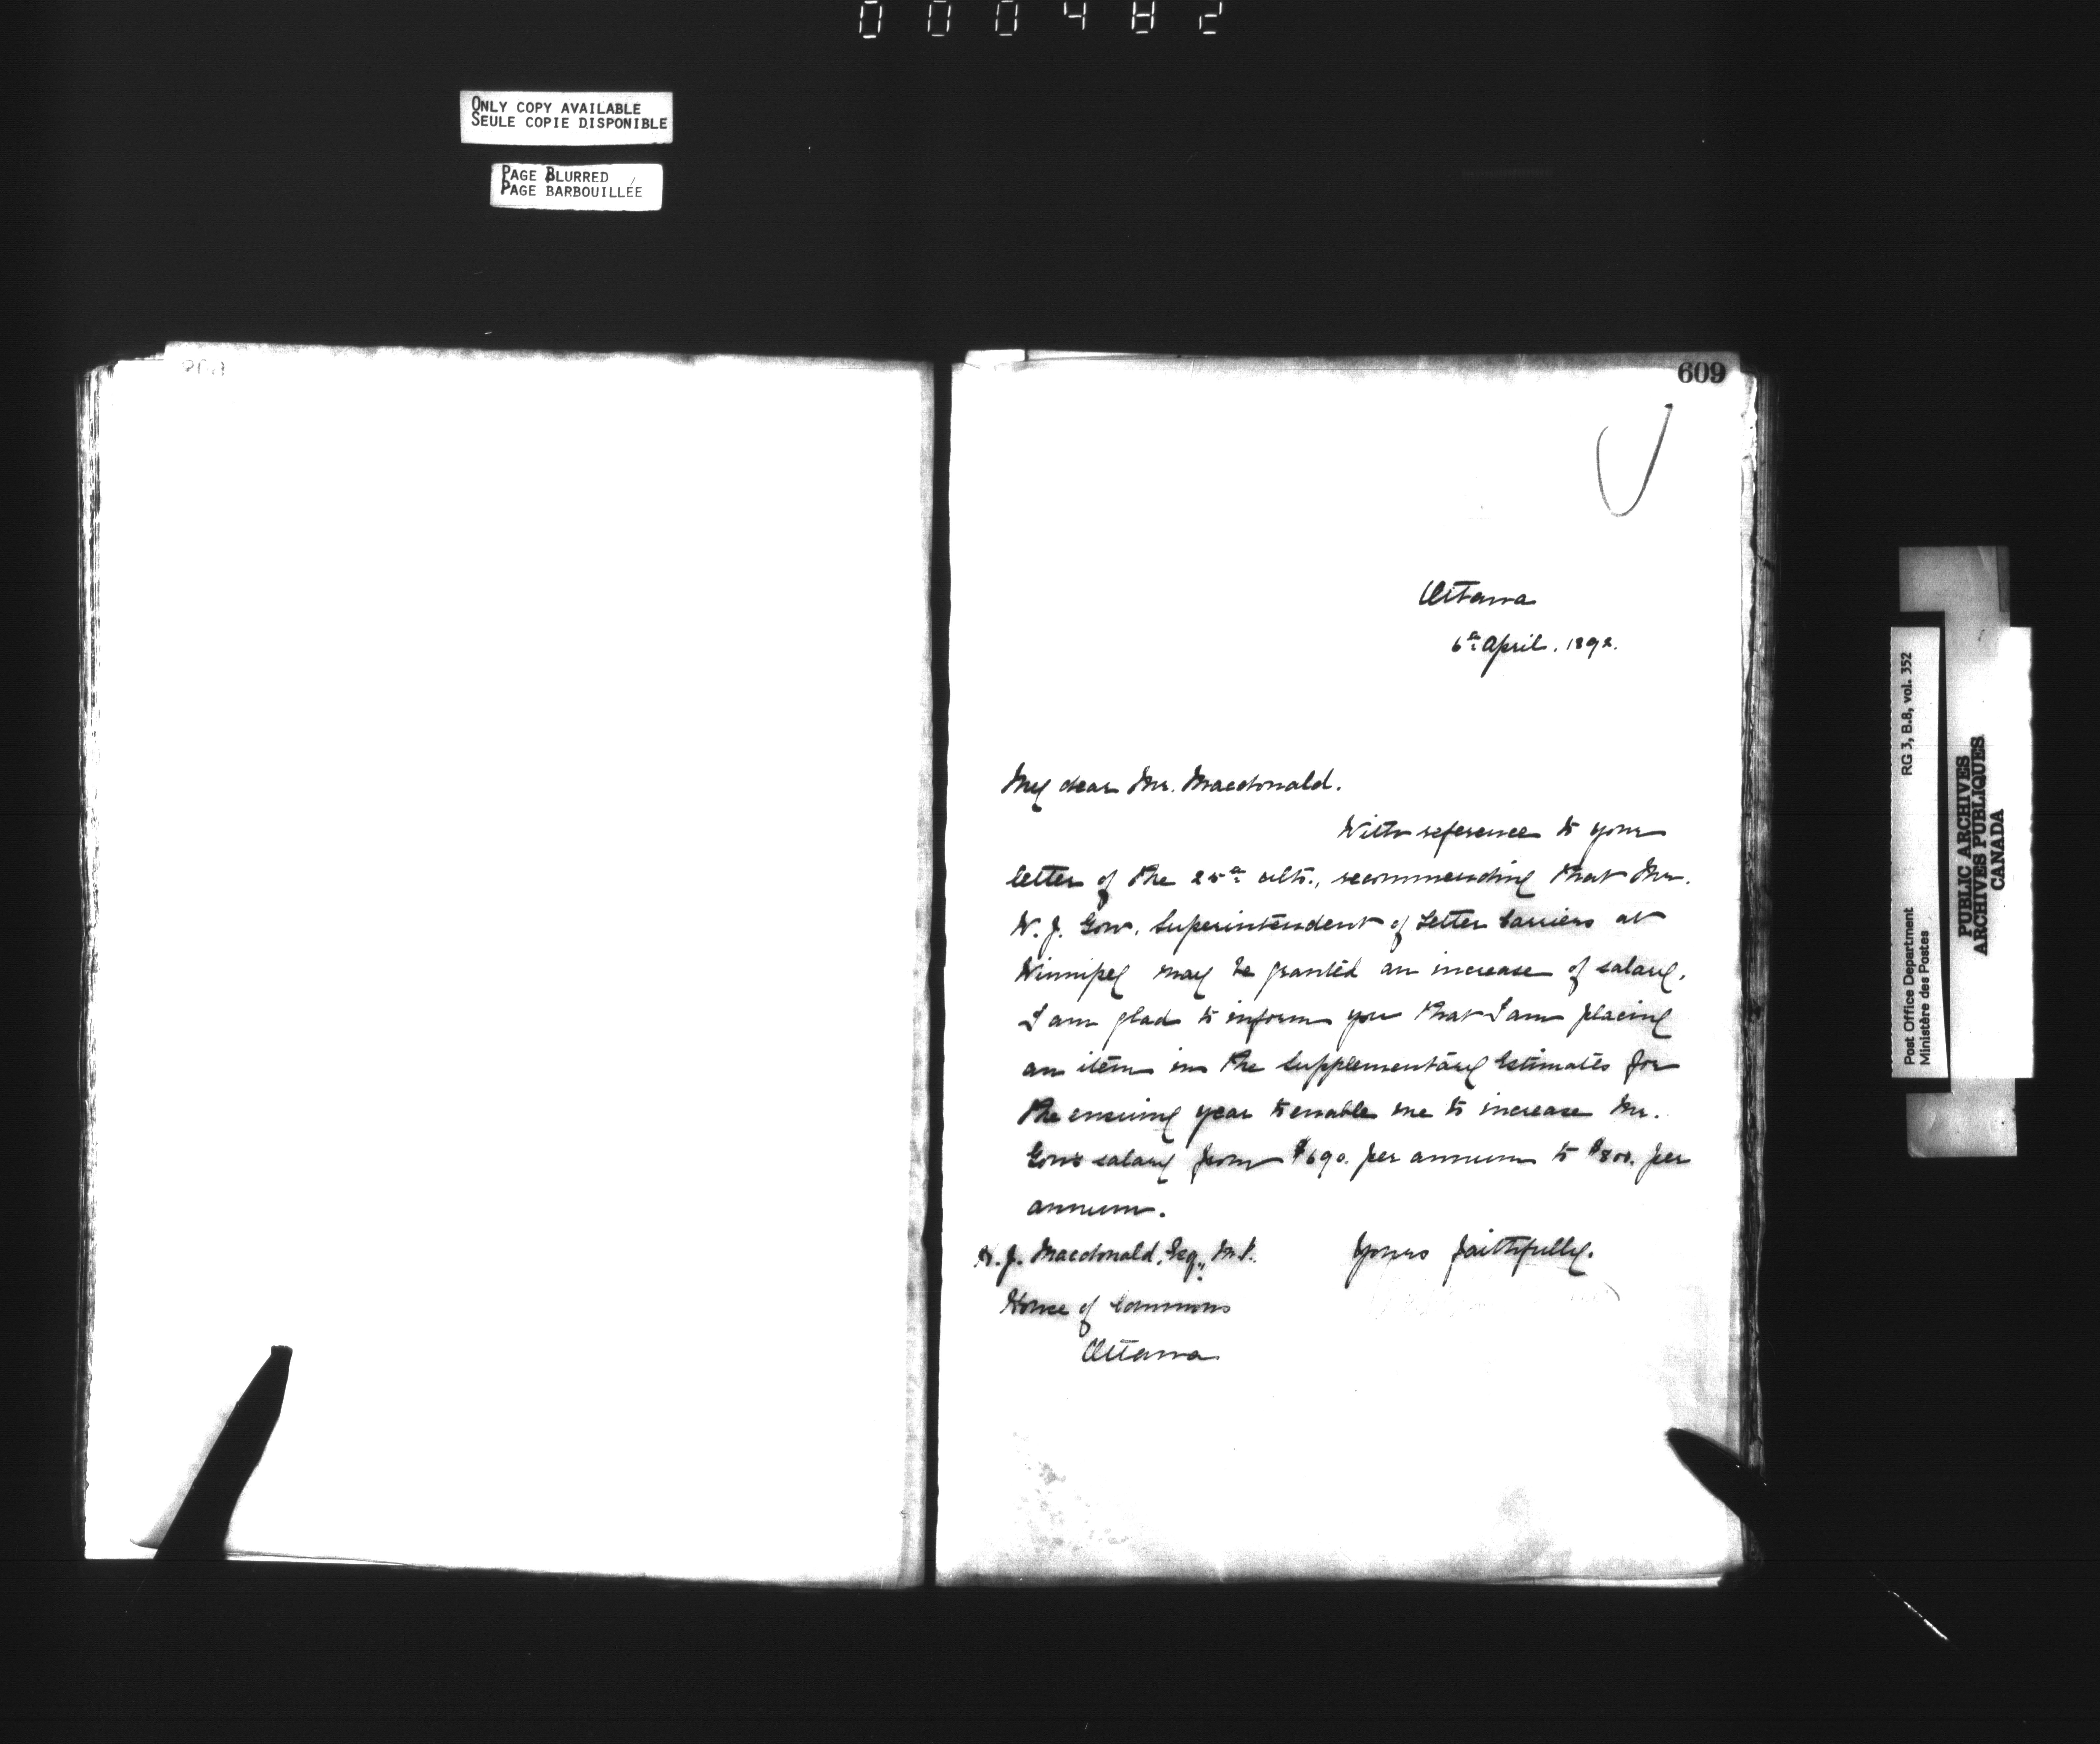 000482
ONLY COPY AVAILABLE
SEULE COPIE DISPONIBLE
PAGE BLURRED
PAGE BARBOUILLÉE
609
Ottawa
6th April. 1892.
My dear Mr. Macdonald.
With reference to your
letter of the 25th ulto., recommending that Mr.
W. J. Gow, Superintendent of Letter Carriers at
Winnipeg may be granted an increase of salary,
I am glad to inform you that I am placing
an item in the Supplementary Estimates for
the ensuing year to enable me to increase Mr.
Gow's salary from $690. per annum to $800. per
annum.
Yours faithfully.
J. Macdonald, Esq., M.P.
House of Commons
Ottawa
Post Office Department RG 3, B.8, vol. 352
Ministère des Postes
PUBLIC ARCHIVES
ARCHIVES PUBLIQUES
CANADA